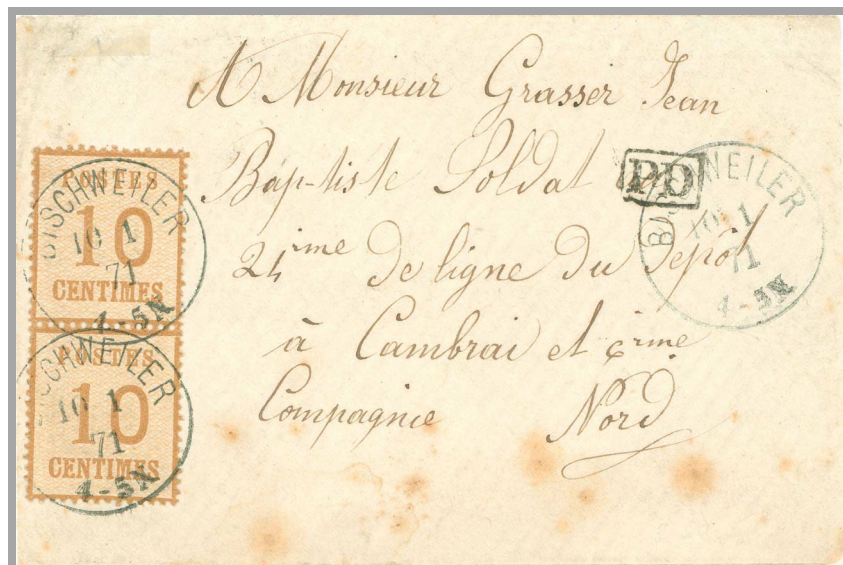 A Monsieur Grasser Jean
Baptiste Soldat au
24ième de ligne du depôt
à Cambrai et 6ième
Compagnie Nord
PD
BISCHWEILER
10 1
71
4-5N
POSTES
10
CENTIMES
BISCHWEILER
10 1
71
4-5N
POSTES
10
CENTIMES
BISCHWEILER
10 1
71
4-5N